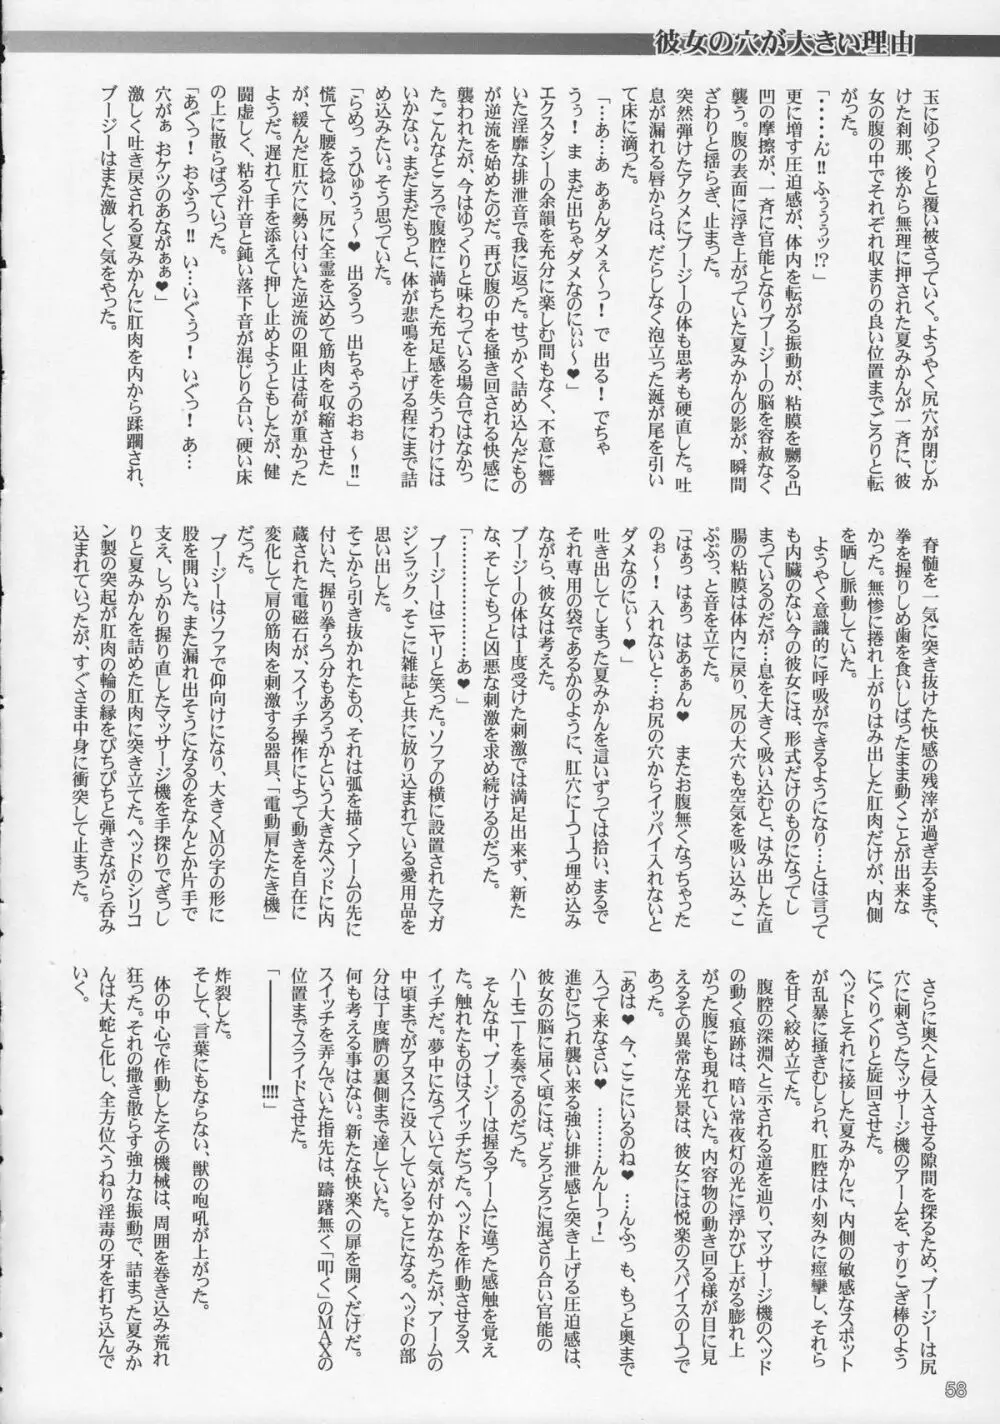 彼女の穴が大きい理由
玉にゆっくりと覆い被さっていく。ようやく尻穴が閉じか
けた刹那、後から無理に押された夏みかんが一斉に、彼
女の腹の中でそれぞれ収まりの良い位置までごろりと転
がった。
「・・・・・ん!! ふぅぅぅッ!?」
更に増す圧迫感が、体内を転がる振動が、粘膜を嬲る凸
凹の摩擦が、一斉に官能となりブージーの脳を容赦なく
襲う。腹の表面に浮き上がっていた夏みかんの影が、瞬間
ざわりと揺らぎ、止まった。
突然弾けたアクメにブージーの体も思考も硬直した。吐
息が漏れる唇からは、だらしなく泡立った涎が尾を引い
て床に滴った。
「…あ…あ あぁんダメぇ〜っ! で 出る! でちゃ
うぅ! ま まだ出ちゃダメなのにぃぃ〜♥」
エクスタシーの余韻を充分に楽しむ間もなく、不意に響
いた淫靡な排泄音で我に返った。せっかく詰め込んだもの
が逆流を始めたのだ。再び腹の中を掻き回される快感に
襲われたが、今はゆっくりと味わっている場合ではなかっ
た。こんなところで腹腔に満ちた充足感を失うわけには
いかない。まだまだもっと、体が悲鳴を上げる程にまで詰
め込みたい。そう思っていた。
「らめっ うひゅうぅ〜♥ 出るうっ 出ちゃうのおぉ 〜!!」
慌てて腰を捻り、尻に全霊を込めて筋肉を収縮させた
が、緩んだ肛穴に勢い付いた逆流の阻止は荷が重かった
ようだ。遅れて手を添えて押し止めようともしたが、健
闘虚しく、粘る汁音と鈍い落下音が混じり合い、硬い床
の上に散らばっていった。
「あぐっ! おふうっ!! い…いぐぅっ! いぐっ! あ…
穴がぁ おケツのあながぁぁ♥」
激しく吐き戻される夏みかんに肛肉を内から蹂躙され、
ブージーはまた激しく気をやった。
脊髄を一気に突き抜けた快感の残滓が過ぎ去るまで、
拳を握りしめ歯を食いしばったまま動くことが出来な
かった。無惨に捲れ上がりはみ出した肛肉だけが、内側
を晒し脈動していた。
ようやく意識的に呼吸ができるようになり…とは言って
も内臓のない今の彼女には、形式だけのものになってし
まっているのだが…息を大きく吸い込むと、はみ出した直
腸の粘膜は体内に戻り、尻の大穴も空気を吸い込み、こ
ぷぷっ、と音を立てた。
「はぁっ はぁっ はあぁぁん♥ またお腹無くなっちゃった
のぉ〜! 入れないと…お尻の穴からイッパイ入れないと
ダメなのにぃ〜♥」
吐き出してしまった夏みかんを這いずっては拾い、まるで
それ専用の袋であるかのように、肛穴に1つ1つ埋め込み
ながら、彼女は考えた。
ブージーの体は1度受けた刺激では満足出来ず、新た
な、そしてもっと凶悪な刺激を求め続けるのだった。
「………………あ♥」
ブージーはニヤリと笑った。ソファの横に設置されたマガ
ジンラック、そこに雑誌と共に放り込まれている愛用品を
思い出した。
そこから引き抜かれたもの、それは弧を描くアームの先に
付いた、握り拳2つ分もあろうかという大きなヘッドに内
蔵された電磁石が、スイッチ操作によって動きを自在に
変化して肩の筋肉を刺激する器具、「電動肩たたき機」
だった。
ブージーはソファで仰向けになり、大きくMの字の形に
股を開いた。また漏れ出そうになるのをなんとか片手で
支え、しっかり握り直したマッサージ機を手探りでぎっし
りと夏みかんを詰めた肛肉に突き立てた。ヘッドのシリコ
ン製の突起が肛肉の輪の縁をぴちぴちと弾きながら呑み
込まれていったが、すぐさま中身に衝突して止まった。
さらに奥へと侵入させる隙間を探るため、ブージーは尻
穴に刺さったマッサージ機のアームを、すりこぎ棒のよう
にぐりぐりと旋回させた。
ヘッドとそれに接した夏みかんに、内側の敏感なスポット
が乱暴に掻きむしられ、肛腔は小刻みに痙攣し、それら
を甘く絞め立てた。
腹腔の深淵へと示される道を辿り、マッサージ機のヘッド
の動く痕跡は、暗い常夜灯の光に浮かび上がる膨れ上
がった腹にも現れていた。内容物の動き回る様が目に見
えるその異常な光景は、彼女には悦楽のスパイスの1つで
あった。
「あは♥ 今、ここにいるのね♥ …んふっ も、もっと奥まで
入って来なさい♥ …………んんーっ!」
進むにつれ襲い来る強い排泄感と突き上げる圧迫感は、
彼女の脳に届く頃には、どろどろに混ざり合い官能の
ハーモニーを奏でるのだった。
そんな中、ブージーは握るアームに違った感触を覚え
た。触れたものはスイッチだった。ヘッドを作動させるス
イッチだ。夢中になっていて気が付かなかったが、アームの
中頃までがアヌスに没入していることになる。ヘッドの部
分は丁度臍の裏側まで達していた。
何も考える事はない。新たな快楽への扉を開くだけだ。
スイッチを弄んでいた指先は、躊躇無く「叩く」のMAXの
位置までスライドさせた。
「――――――――!!!!」
炸裂した。
そして、言葉にもならない、獣の咆吼が上がった。
体の中心で作動したその機械は、周囲を巻き込み荒れ
狂った。それの撒き散らす強力な振動で、詰まった夏みか
んは大蛇と化し、全方位へうねり淫毒の牙を打ち込んで
いく。
58